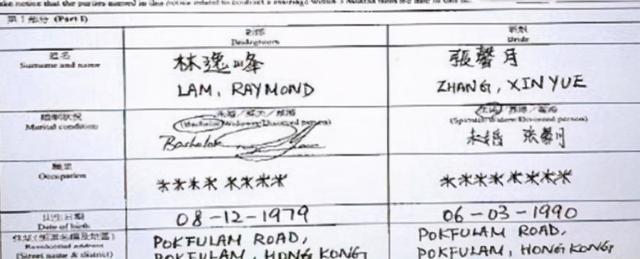 the notice that the parties named in this notice
第1部分 (Part I)
新郎 新娘
Bridegroom Bride
姓名 林逸峰 張馨月
Surname and name LAM, RAYMOND ZHANG, XINYUE
婚姻狀況 未婚／鰥夫／離婚 未婚／寡婦／離婚
Marital condition (Bachelor/Widower/Divorced person) (Spinster/Widow/Divorced person)
Bachelor 未婚 張馨月
職業
Occupation **** **** **** ****
出生日期 08-12-1979 06-03-1990
Date of birth
住址(街道名稱及地區) POKFULAM ROAD, POKFULAM ROAD,
Residential address
(Street name & district) POKFULAM, HONG KONG POKFULAM, HONG KONG